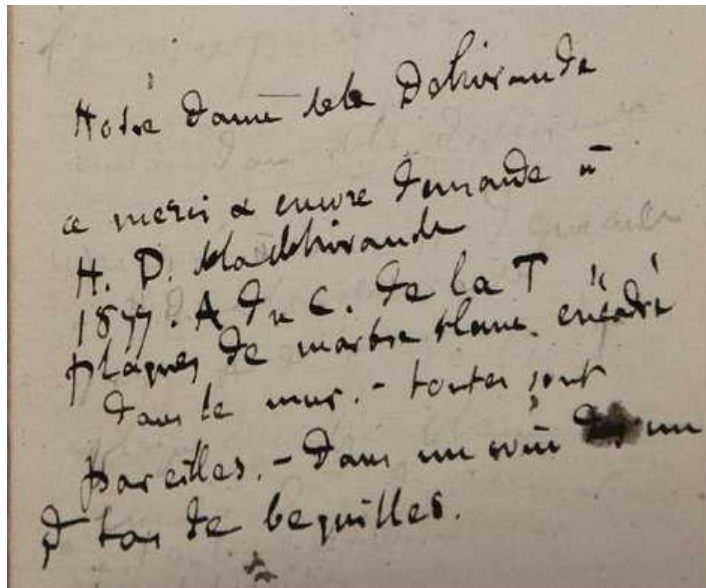 Notre Dame de la Delivrande
" merci & encore demande "
N. D. de la Delivrande
1877. A Du C. De la T "
plaques de marbre blanc. encadré
dans le mur. - toutes sont
pareilles. - Dans un coin un
tas de bequilles.